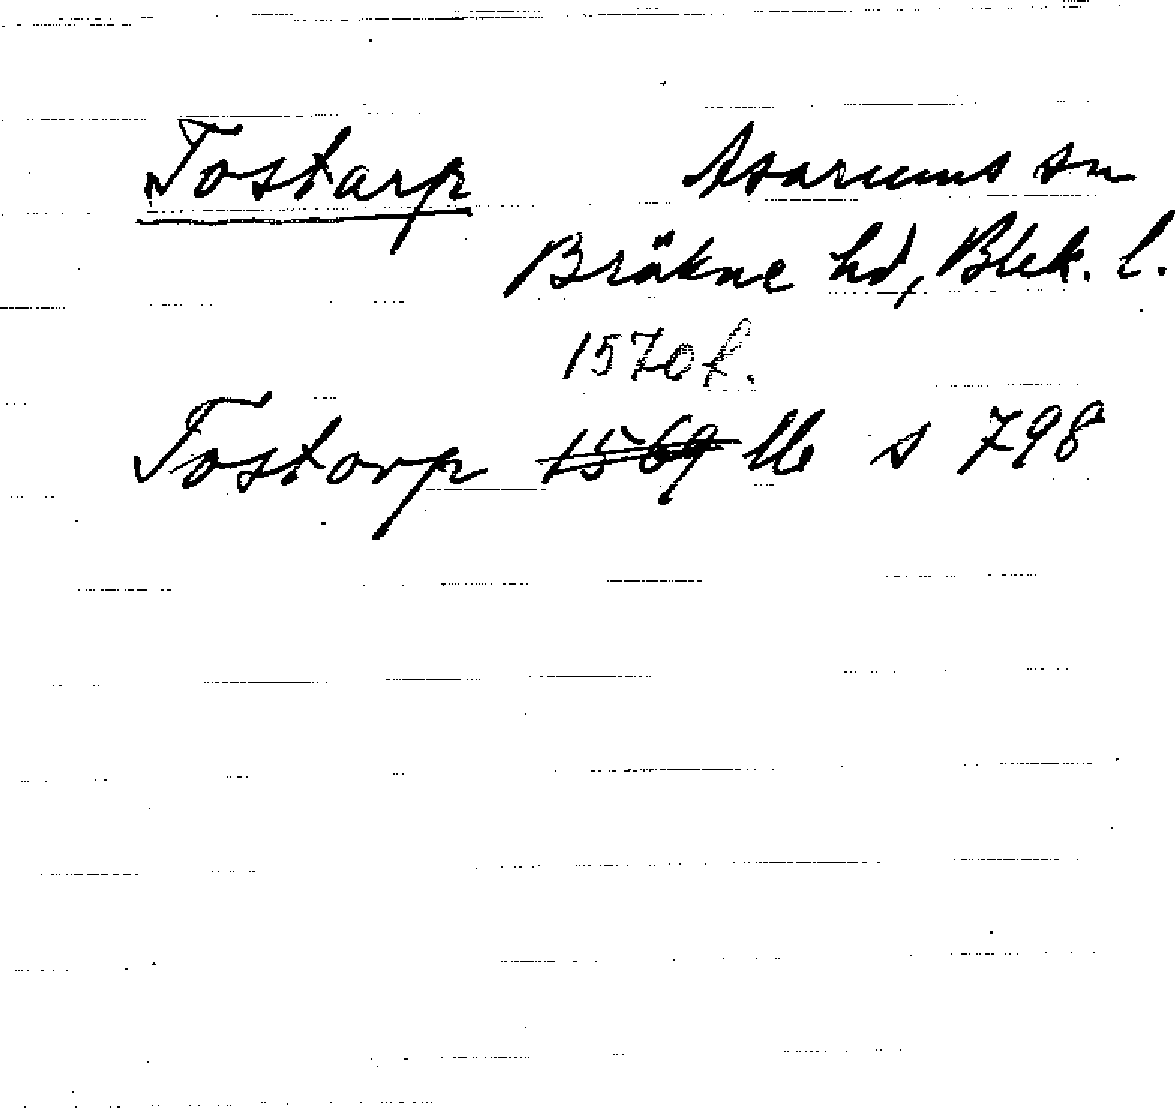 Tostarp Asarums sn
Bräkne hd, Blek. l.
1570 f.
Tostorp 1569 Ub s 798